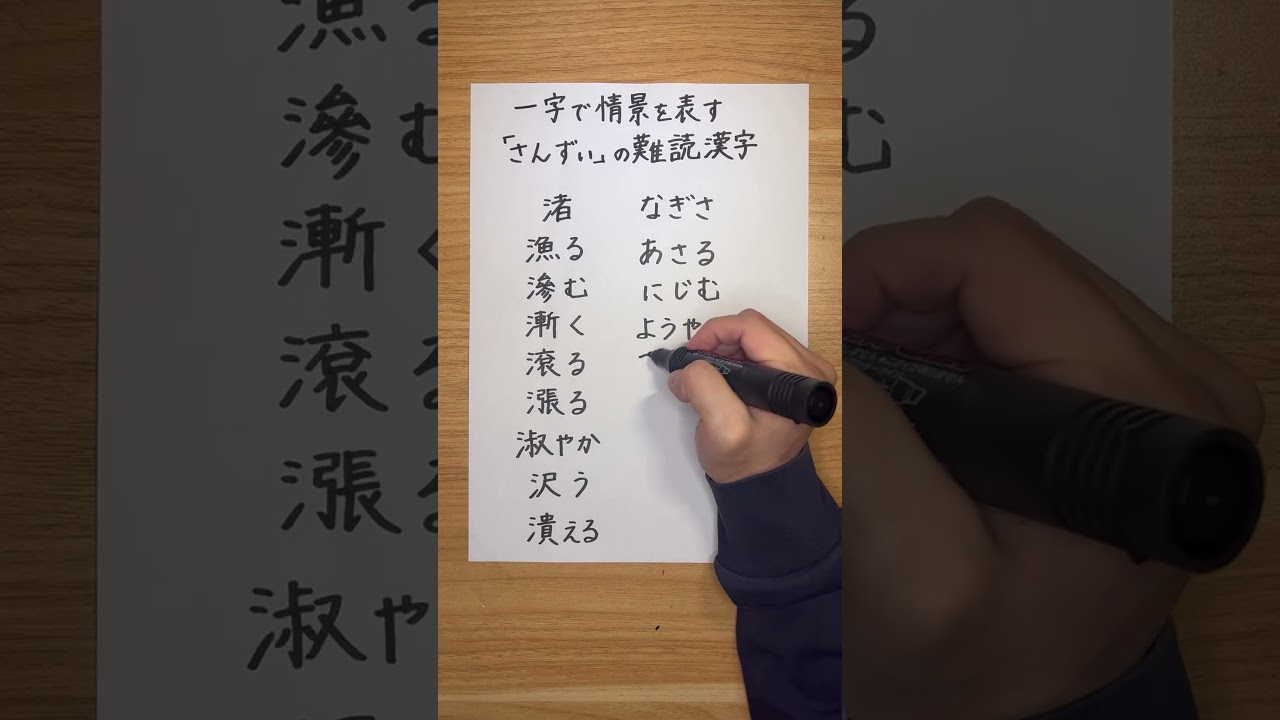 一字で情景を表す
「さんずい」の難読漢字
渚 なぎさ
漁る あさる
滲む にじむ
漸く ようや
滾る
漲る
淑やか
沢う
潰える